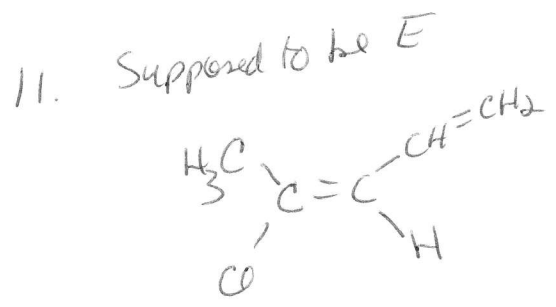 11. Supposed to be E
H3C CH=CH2
C=C
Cl H